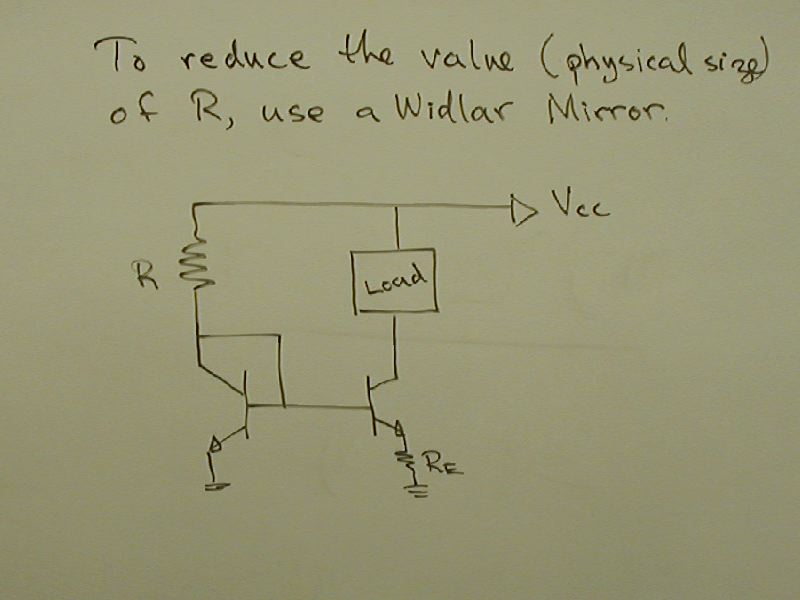 To reduce the value (physical size)
of R, use a Widlar Mirror.
Vcc
R
Load
RE